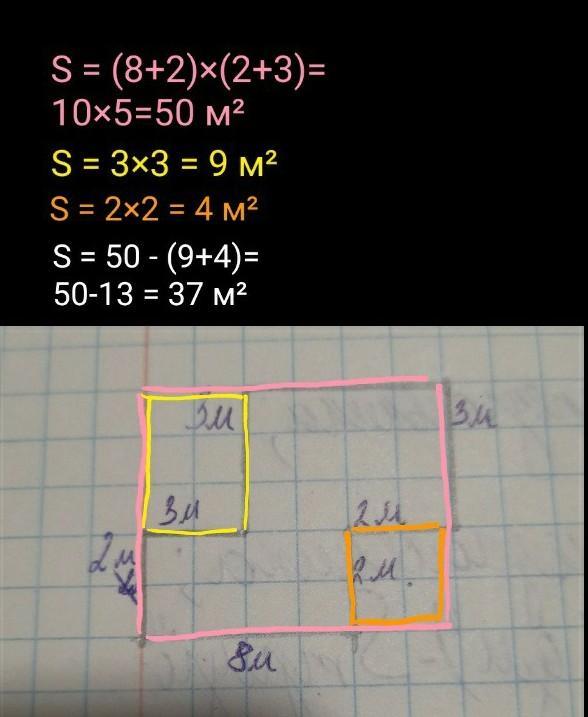 S = (8+2)×(2+3)=
10×5=50 м²
S = 3×3 = 9 м²
S = 2×2 = 4 м²
S = 50 - (9+4)=
50-13 = 37 м²
3м
3м
3м
2м
2м
2м
8м